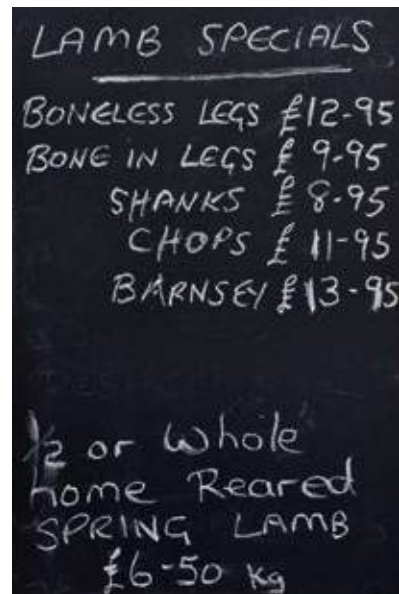 LAMB SPECIALS
BONELESS LEGS £12-95
BONE IN LEGS £ 9-95
SHANKS £ 8-95
CHOPS £ 11-95
BARNSEY £13-95
1/2 or Whole
home Reared
SPRING LAMB
£6-50 kg